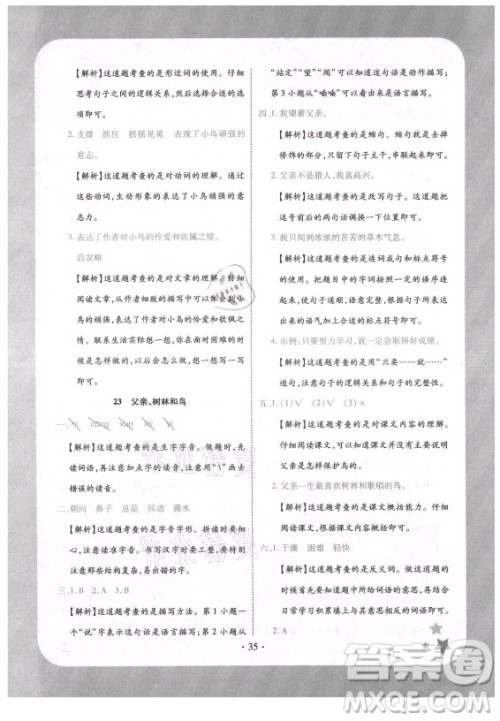 【解析】这道题考查的是形近词的使用。仔细
思考句子之间的逻辑关系，选择合适的选
项即可。
2. 支撑 抓住 摇摇晃晃 表现了小鸟顽强的
意志。
【解析】这道题考查的是对动词的理解。通过
这些动词，生动形象的表达了小鸟顽强的意
志力。
3. 表达了作者对小鸟的怜爱和钦佩之情。
启发略
【解析】这道题考查的是对文章的理解。仔细
阅读文章，从作者细致的描写中我们体会到小
鸟的顽强，以及作者对小鸟的怜爱和钦佩之
情。联系生活实际，说一说自己以前在面对
困难的时候是怎么做的，以后会怎么做，想一
想再进行回答即可。
23 父亲、树林和鸟
【解析】这道题考查的是生字字音。做题时，首
先读词语，再注意加点字的读音，用“\”画去
错误的读音。
二、朝向 鼻子 总是 抖动 露水
【解析】这道题考查的是生字字形。做题时，注
意读准字音。书写汉字时要工整，要规范，同
时注意有些字的结构复杂。
三、1. B 2. A 3. B
【解析】这道题考查的是描写方法。第 1 小题
一个“说”字表示这句话是语言描写；第 2 小题从
“站定”“望”“闻”可以知道这句话是动作描写；
第 3 小题从“喃喃”可以看出来是语言描写。
四、1. 我望着父亲。
【解析】这道题考查的是缩句。缩句就是去掉
修饰的部分，只保留主干，串联成句子即可。
2. 父亲不是猎人，我真高兴。
【解析】这道题考查的是改写句子。把句子中
逗号前后的部分换下位置即可。
3. 我只闻到浓浓的苦苦的草木气息。
【解析】这道题考查的是连词成句和标点符号
的使用。把题目中的字词按照一定的语序连
接起来，注意语序和标点符号的使用。
4. 示例：只要努力学习，就一定会取得好成绩。
【解析】这道题考查的是用“只要……就……”
造句，注意句子的逻辑关系和句子的完整性。
五、1. (1)√ (2)√ (3)×
【解析】这道题考查的是课文内容的理解。仔
细阅读课文，可以根据课文内容进行判断，知道
父亲是会保护鸟的。
2. 父亲一生最喜欢树林和歌唱的鸟。
【解析】这道题考查的是课文概括能力。仔细
阅读课文，根据课文内容进行概括即可。
六、1. 干燥 困难 轻快
【解析】这道题考查的是反义词。做这道题
时，首先要读懂词语的意思，然后写出意思相
反的词语即可。
2. A
· 35 ·
答案圈
MXQE.COM